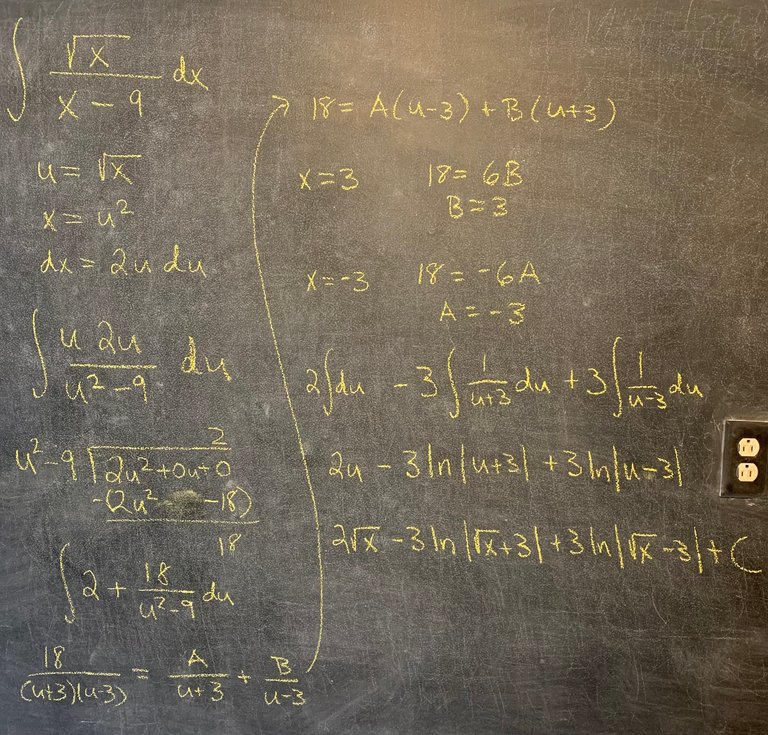 ∫ √x / (x - 9) dx
u = √x
x = u²
dx = 2u du
∫ u 2u / (u² - 9) du
2
u² - 9 √2u² + 0u + 0
-(2u² - 18)
18
∫ 2 + 18 / (u² - 9) du
18 / ((u+3)(u-3)) = A / (u+3) + B / (u-3)
18 = A(u-3) + B(u+3)
x = 3 18 = 6B
B = 3
x = -3 18 = -6A
A = -3
2∫du - 3∫ 1/(u+3) du + 3∫ 1/(u-3) du
2u - 3 ln|u+3| + 3 ln|u-3|
2√x - 3 ln|√x+3| + 3 ln|√x-3| + C